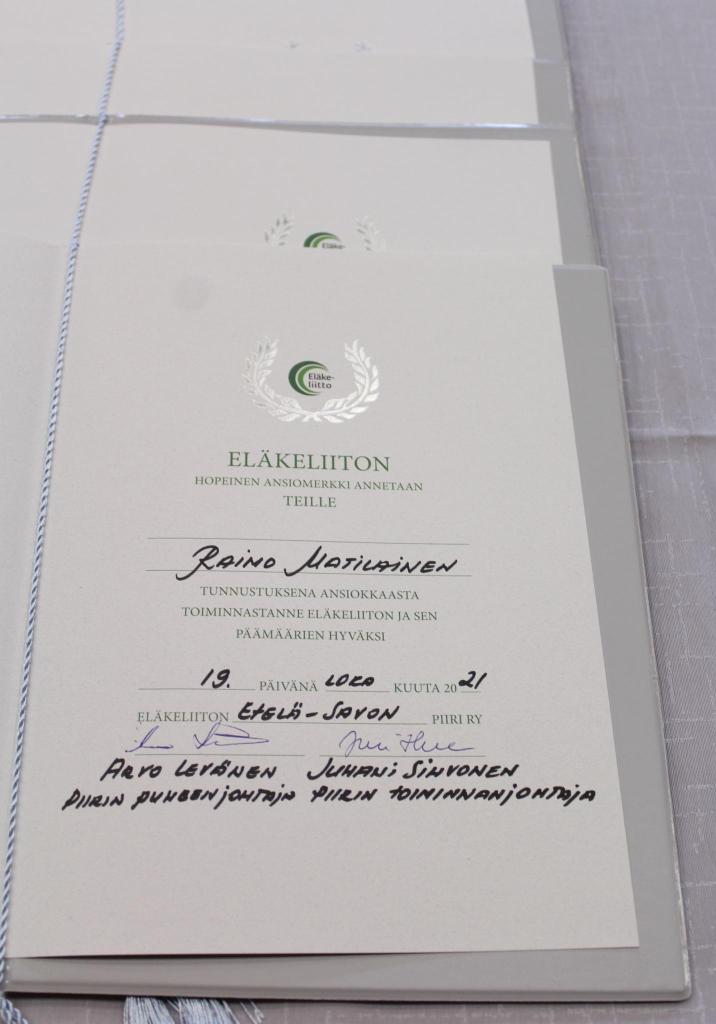 Eläke-
Eläke-
liitto
ELÄKELIITON
HOPEINEN ANSIOMERKKI ANNETAAN
TEILLE
RAIMO MATILAINEN
TUNNUSTUKSENA ANSIOKKAASTA
TOIMINNASTANNE ELÄKELIITON JA SEN
PÄÄMÄÄRIEN HYVÄKSI
19. PÄIVÄNÄ LOKA KUUTA 2021
ELÄKELIITON ETELÄ-SAVON PIIRI RY
ARVO LEVÄNEN JUHANI SIHVONEN
PIIRIN PUHEENJOHTAJA PIIRIN TOIMINNANJOHTAJA